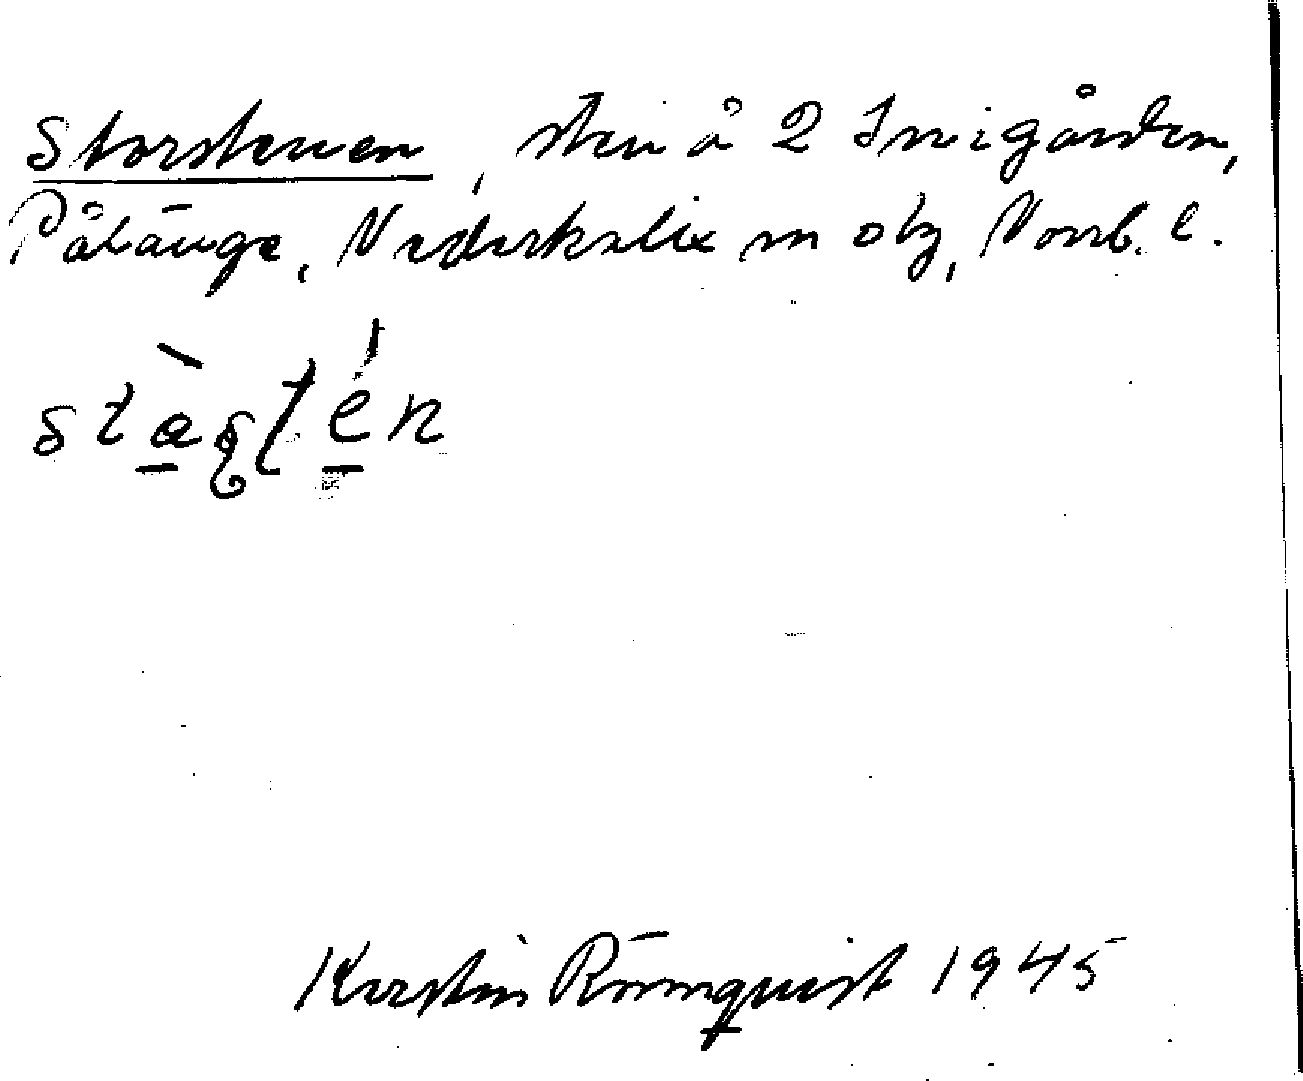 Storstenen, sten å 2 Inigården,
Pålänge, Nederkalix sn o tg, Norrb. l.
Kerstin Rönnquist 1945